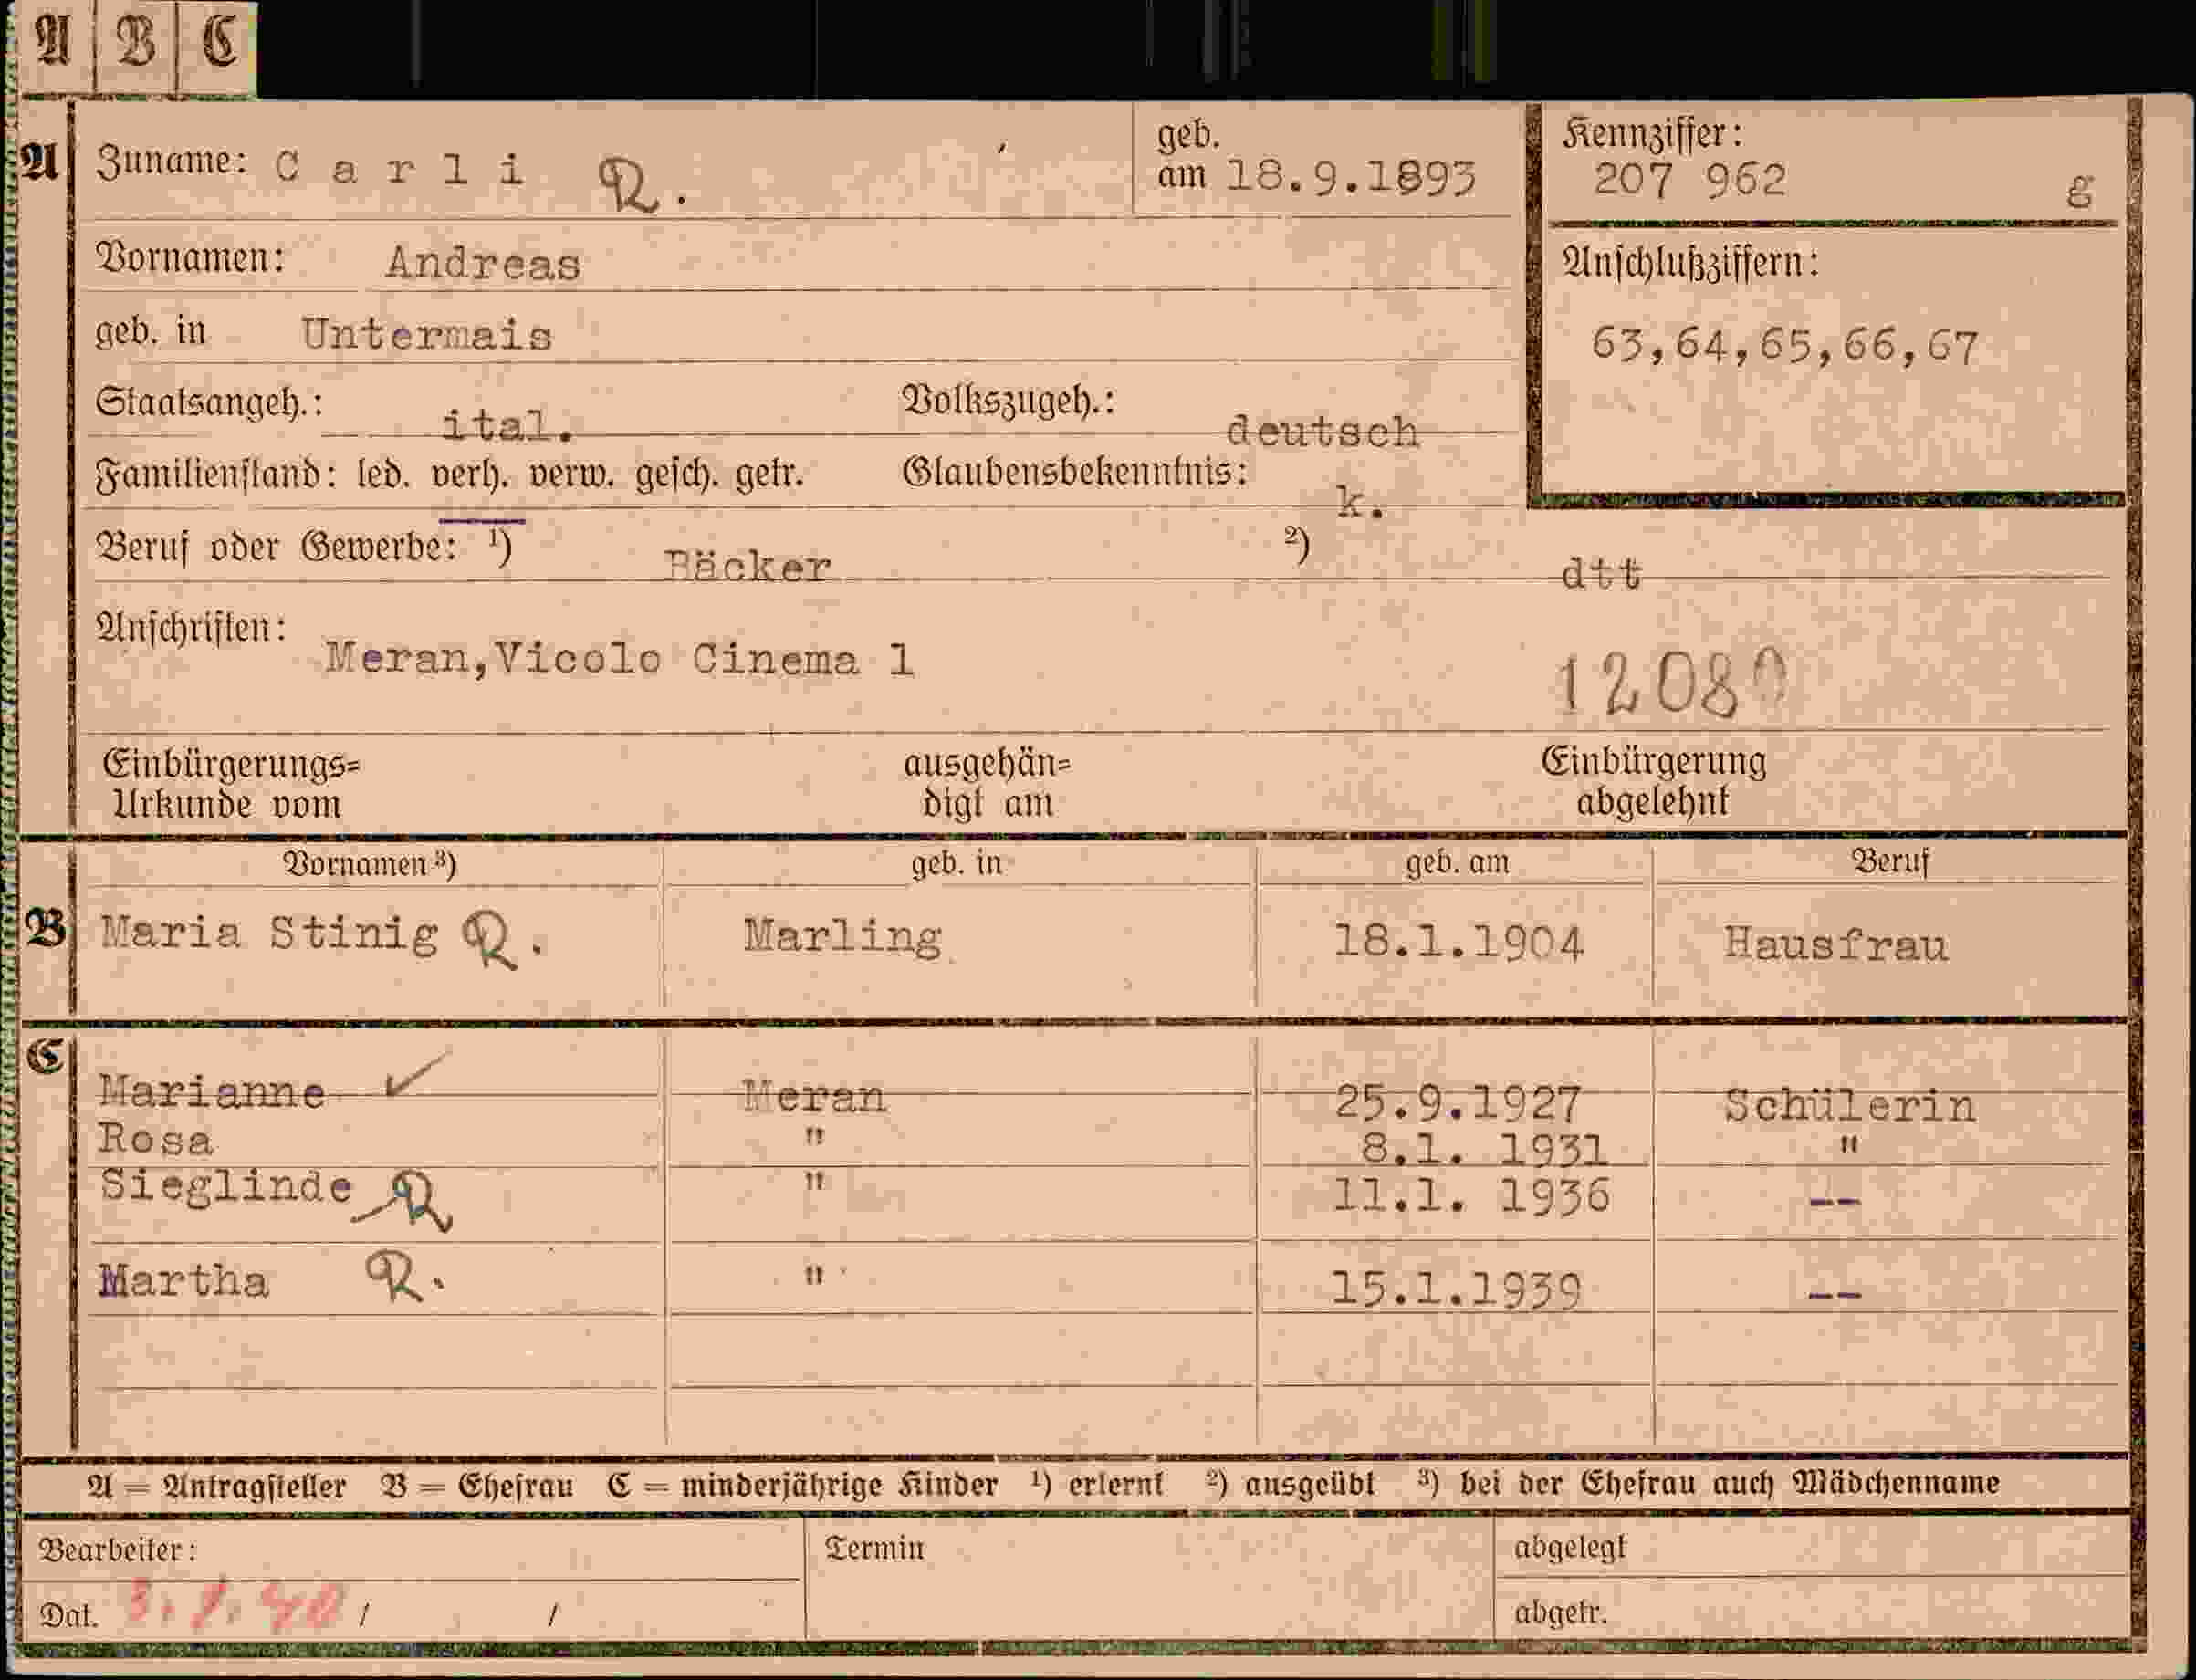 A B C
A Zuname: C a r l i R. geb. am 18.9.1893 Kennziffer: 207 962 g
Vornamen: Andreas Anschlußziffern:
geb. in Untermais 63,64,65,66,67
Staatsangeh.: ital. Volkszugeh.: deutsch
Familienstand: led. verh. verw. gesch. getr. Glaubensbekenntnis: k.
Beruf oder Gewerbe: ¹) Bäcker ²) dtt
Anschriften: Meran,Vicolo Cinema 1 12080
Einbürgerungs= ausgehän= Einbürgerung
Urkunde vom digt am abgelehnt
Vornamen ³) geb. in geb. am Beruf
B Maria Stinig R. Marling 18.1.1904 Hausfrau
C Marianne ✓ Meran 25.9.1927 Schülerin
Rosa " 8.1. 1931 "
Sieglinde R " 11.1. 1936 --
Martha R. " 15.1.1939 --
A = Antragsteller B = Ehefrau C = minderjährige Kinder ¹) erlernt ²) ausgeübt ³) bei der Ehefrau auch Mädchenname
Bearbeiter: Termin abgelegt
Dat. / / abgetr.